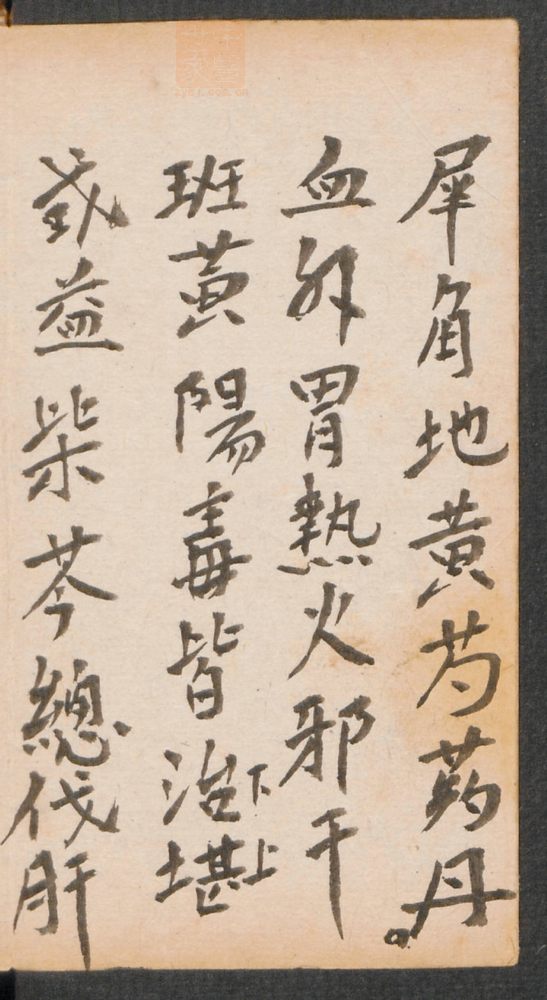 犀角地黃芍葯丹。
血升胃熱火邪干
班黃陽毒皆治下堪上
或益柴芩總伐肝